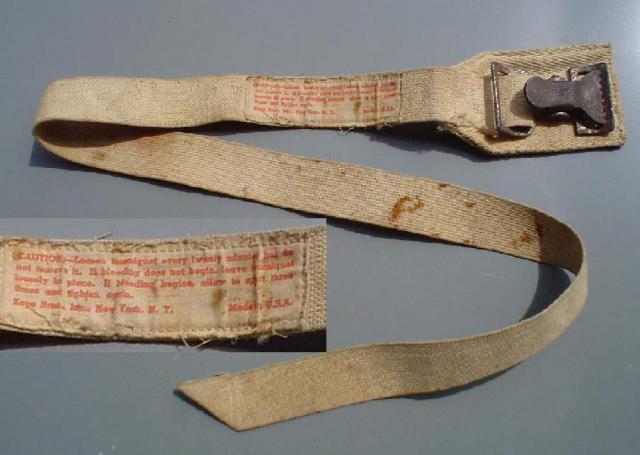 CAUTION—Loosen tourniquet every twenty minutes but do
not remove it. If bleeding does not begin, leave tourniquet
loosely in place. If bleeding begins, allow to spurt three
times and tighten again.
Kaye Bros., Inc., New York, N. Y. Made in U.S.A.